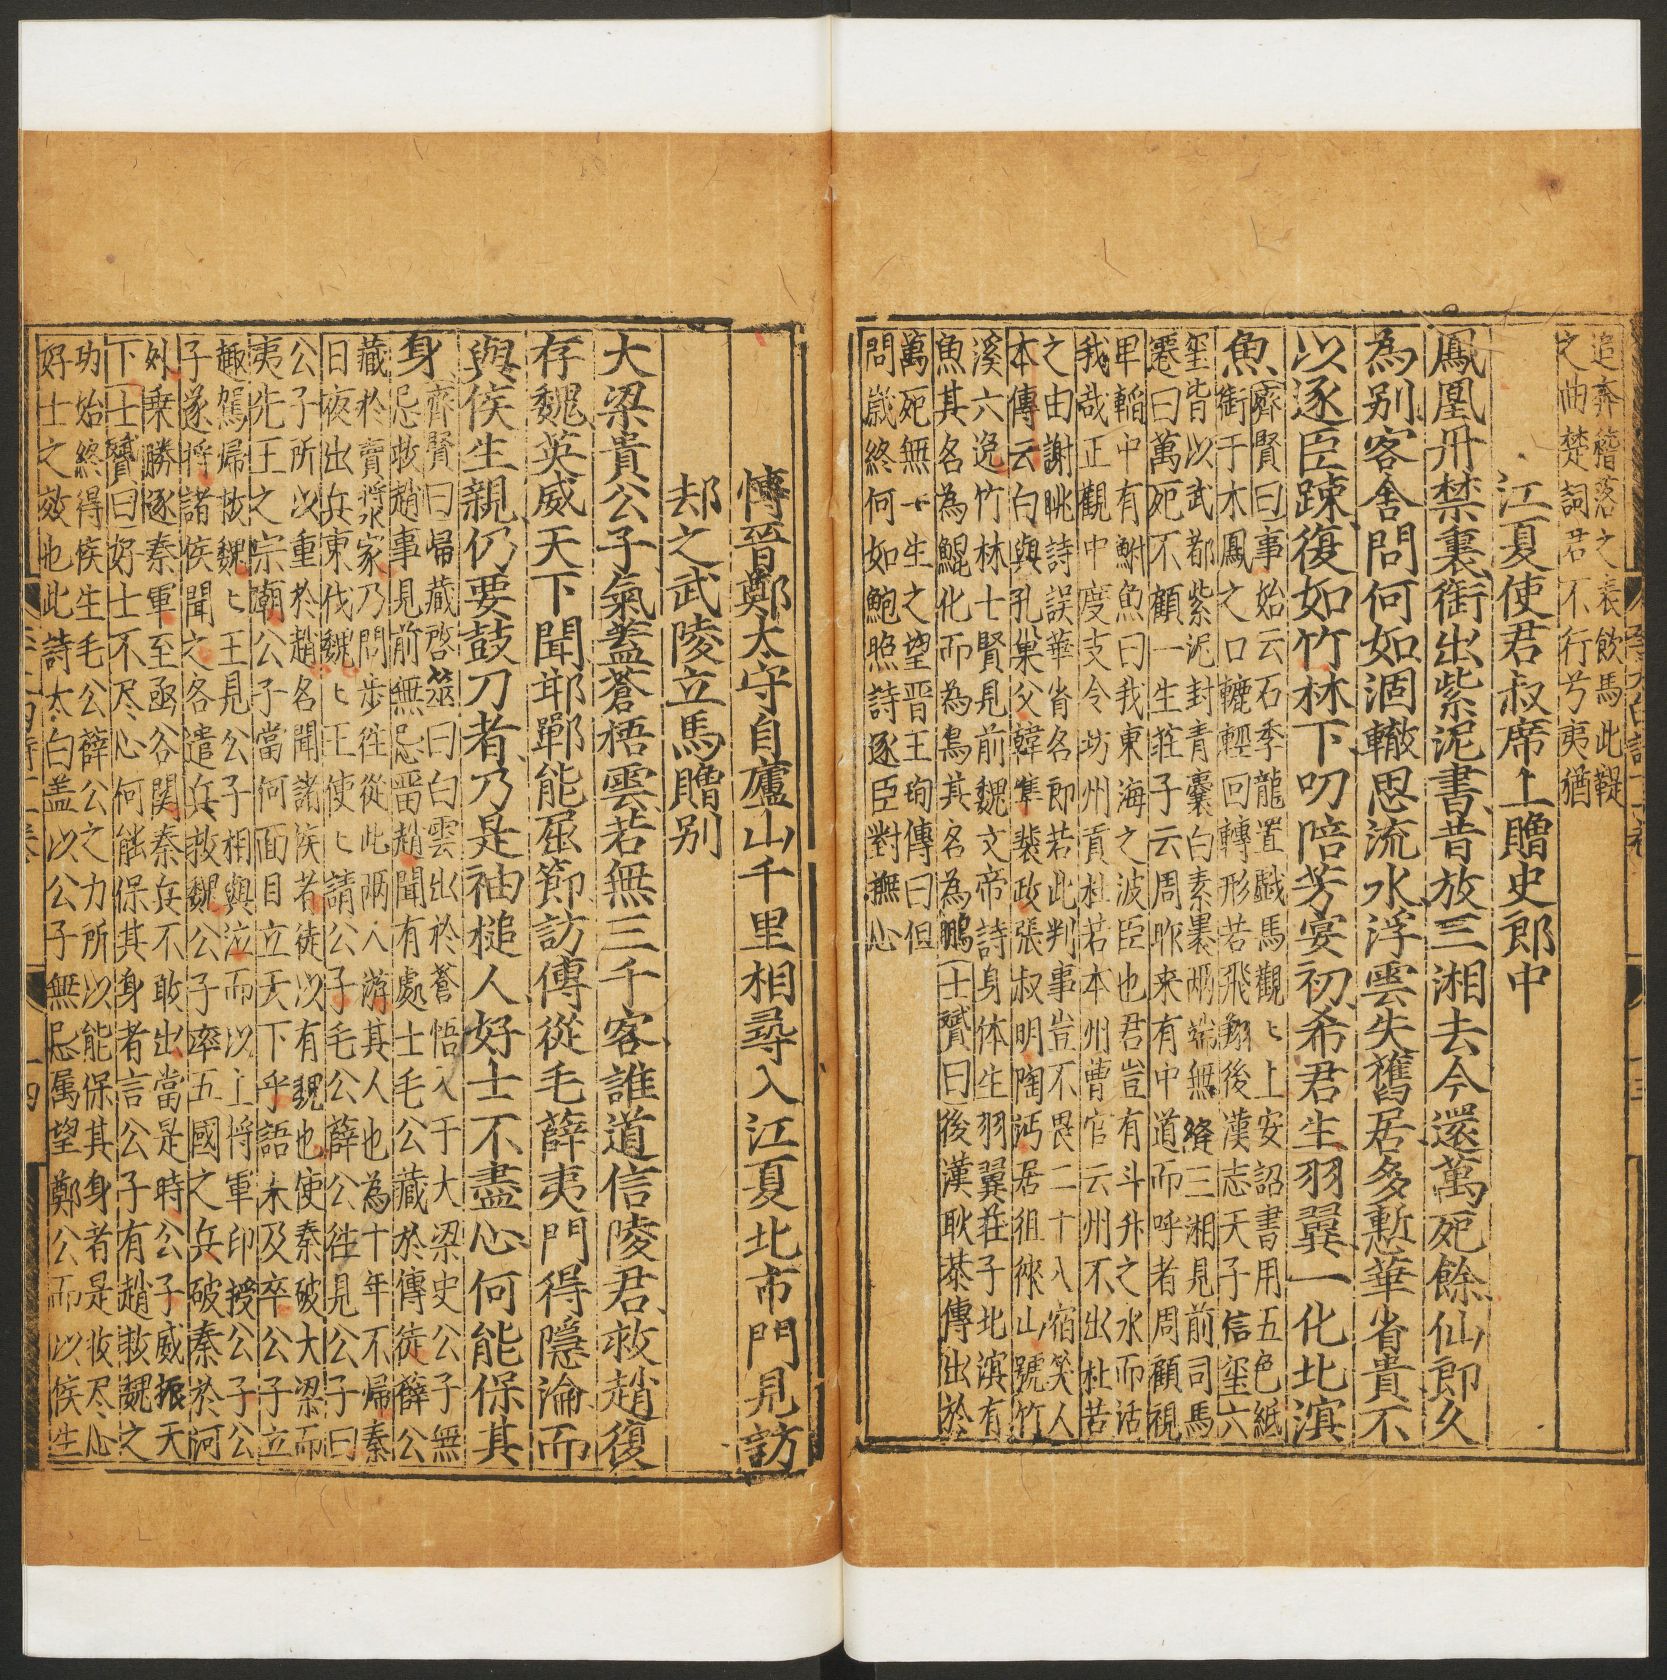 追奔簮落之表飲馬此鞮
之曲楚詞君不行兮夷猶
江夏使君叔席上贈史郎中
鳳凰丹禁裏銜出紫泥書昔放三湘去今還萬死餘仙郎久
為別客舍問何如涸轍思流水浮雲失舊居多慙華省貴不
以逐臣踈復如竹林下叨陪芳宴初希君生羽翼一化北溟
魚
齊賢曰事始云石季龍置戲馬觀觀上安詔書用五色紙
銜于木鳳之口轆轤回轉形若飛翔後漢志天子信璽六
璽皆以武都紫泥封青囊白素裏兩端無縫三湘見前司馬
遷曰萬死不顧一生莊子云周昨来有中道而呼者周顧視
車轍中有鮒魚曰我東海之波臣也君豈有斗升之水而活
我哉正觀中度支令坊州貢杜若本州曹官云州不出杜若
之由謝眺詩誤華省名郎若此判事豈不畏二十八宿笑人
本傳云白與孔巢父韓準裴政張叔明陶沔居徂徠山號竹
溪六逸竹林士賢見前魏文帝詩身体生羽翼莊子北溟有
魚其名為鯤化而為鳥其名為鵬
士贇曰後漢耿恭傳出於
萬死無一生之望晋王珣傳曰但
問歲終何如鮑照詩逐臣對撫心
博晉鄭太守自廬山千里相尋入江夏北市門見訪
却之武陵立馬贈別
大梁貴公子氣蓋蒼梧雲若無三千客誰道信陵君救趙復
存魏英威天下聞邯鄲能屈節訪傳從毛薛夷門得隱淪而
與侯生親仍要鼓刀者乃是袖槌人好士不盡心何能保其
身
齊賢曰歸藏啓筮曰白雲出於蒼梧入于大梁史公子無
忌救趙事見前無忌畱趙聞有處士毛公藏於傳徒薛公
藏於賣漿家乃問步徃從此兩人游其人也為十年不歸秦
日夜出兵東伐魏魏王使使請公子毛公薛公徃見公子曰
公子所以重於趙名聞諸侯者徒以有魏也使秦破大梁而
夷先王之宗廟公子當何面目立天下乎語未及卒公子立
趣駕歸救魏魏王見公子相與泣而以上將軍印授公子公
子遂將諸侯聞之各遣兵救魏公子率五國之兵破秦於河
外乗勝逐秦軍至函谷関秦兵不敢出當是時公子威振天
下士贇曰好士不尽心何能保其身者言公子有趙救魏之
功始終得侯生毛公薛公之力所以能保其身者是故尽心
好士之效也此詩太白盖以公子無忌属望鄭公而以侯生